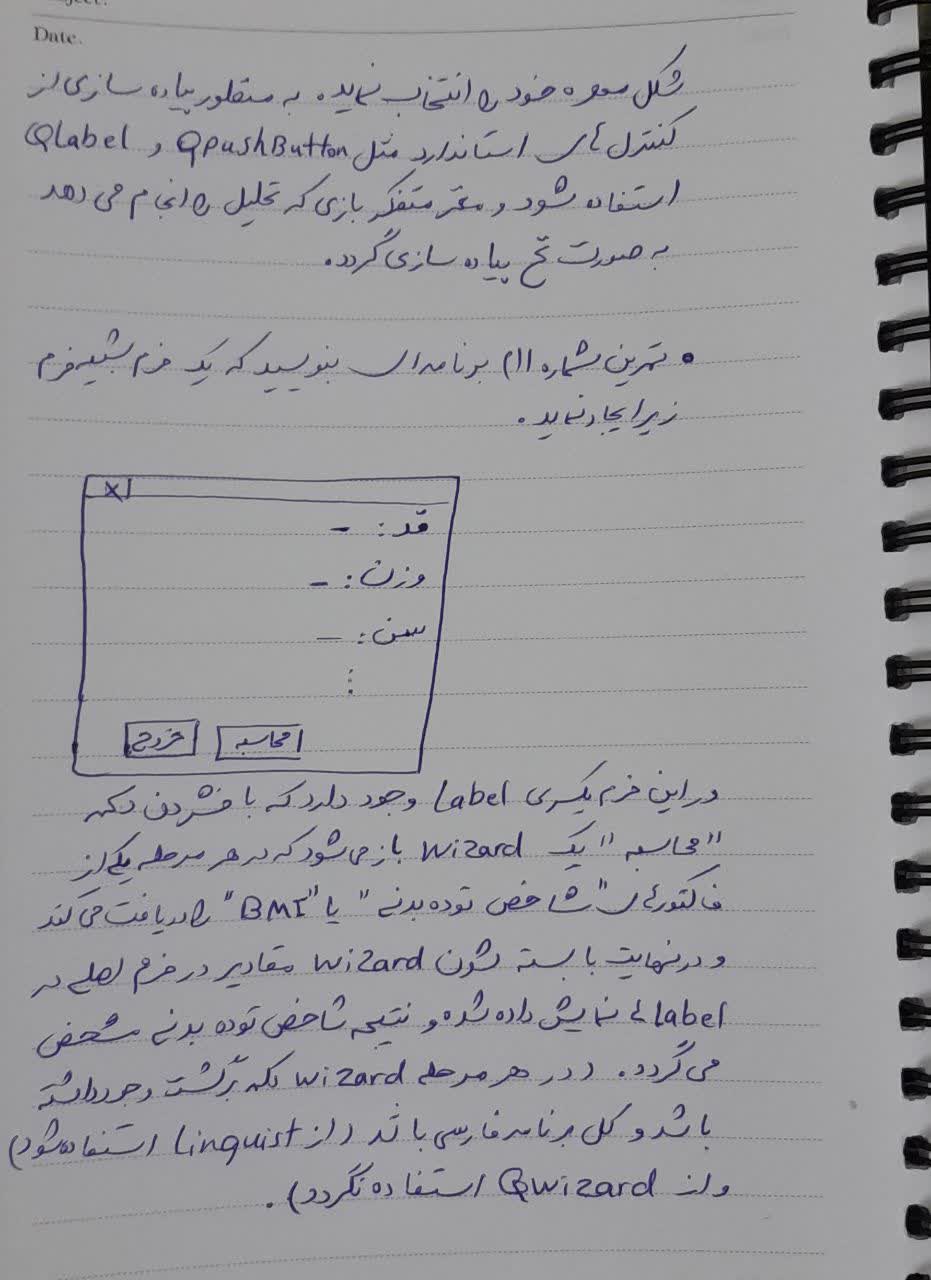 Date.
شکل مهره خود را انتخاب نماید. به منظور پیاده سازی از
کنترل های استاندارد مثل QPushButton و Qlabel
استفاده شود و مغز متفکر بازی که تحلیل را انجام می دهد
به صورت نخ پیاده سازی گردد.
• تمرین شماره ۱۱) برنامه ای بنویسید که یک فرم شبیه فرم
زیر ایجاد نماید.
X
قد: -
وزن: -
سن: -
محاسبه خروج
در این فرم یکسری Label وجود دارد که با فشردن دکمه
"محاسبه" یک wizard باز می شود که در هر مرحله یکی از
فاکتورهای "شاخص توده بدنی" یا "BMI" را دریافت می کند
و در نهایت با بسته شدن wizard مقادیر در فرم اصلی در
label ها نمایش داده شده و نتیجه شاخص توده بدنی مشخص
می گردد. (در هر مرحله wizard دکمه برگشت وجود داشته
باشد و کل برنامه فارسی باشد (از Linguist استفاده شود)
و از Qwizard استفاده نگردد).